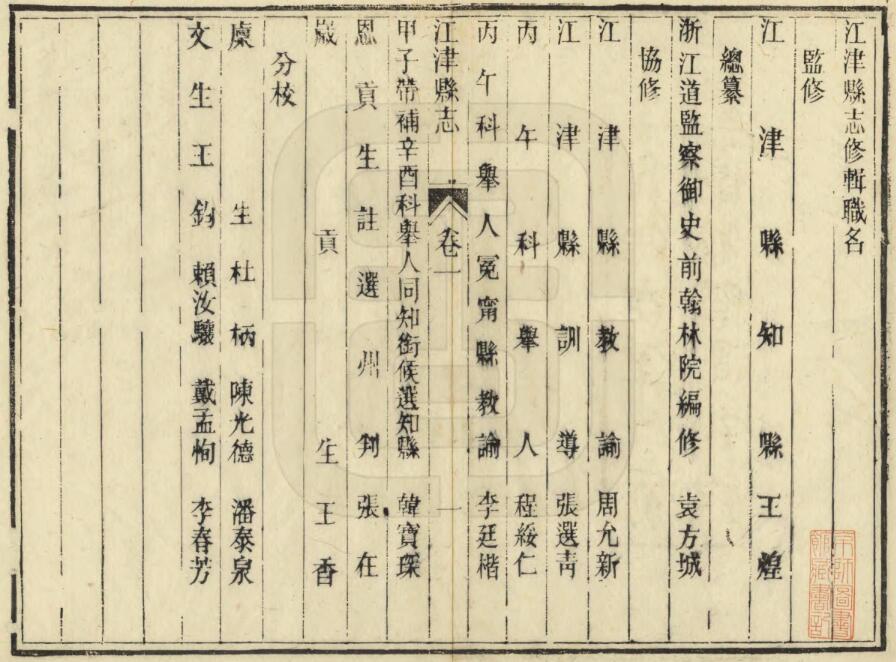 江津縣志修輯職名
監修
江津縣知縣王煌
總纂
浙江道監察御史前翰林院編修 袁方城
協修
江津縣教諭 周允新
江津縣訓導 張選青
丙午科舉人 程綏仁
丙午科舉人冕甯縣教諭 李廷楷
江津縣志 卷一 一
甲子帶補辛酉科舉人同知銜候選知縣 韓寶琛
恩貢生註選州判 張在
歲貢生 王香
分校
廩生 杜柄 陳光德 潘泰泉
文生 王鈞 賴汝驤 戴孟恂 李春芳